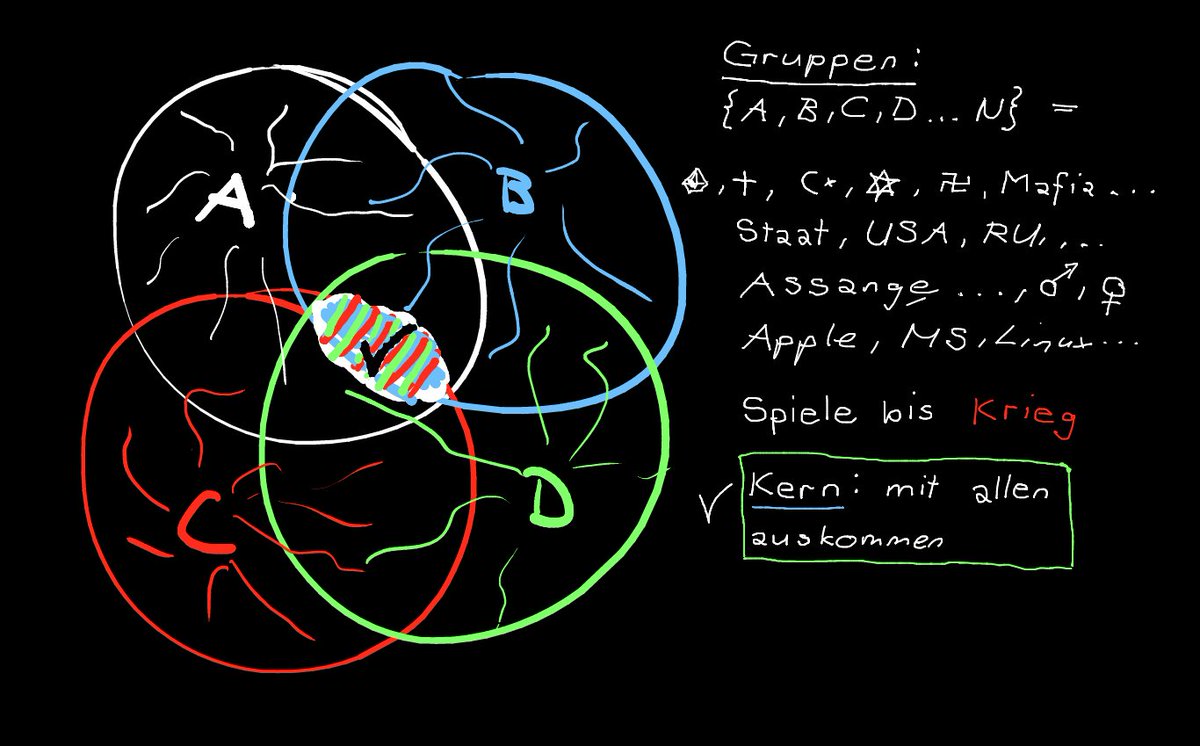 A
B
C
D
N
Gruppen:
{A, B, C, D... N} =
, †, ☪, ✡, 卍, Mafia...
Staat, USA, RU, ...
Assange ..., ♂, ♀
Apple, MS, Linux...
Spiele bis Krieg
✓ Kern: mit allen
auskommen